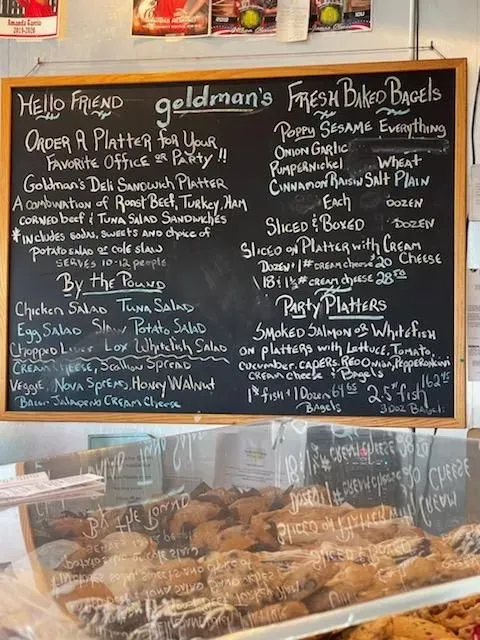 Amanda Garcia
2019-2020
HELLO FRIEND
goldman's
FRESH BAKED BAGELS
ORDER A PLATTER FOR YOUR
FAVORITE OFFICE OR PARTY !!
GOLDMAN'S DELI SANDWICH PLATTER
A COMBINATION OF ROAST BEEF, TURKEY, HAM
CORNED BEEF & TUNA SALAD SANDWICHES
*INCLUDES SODAS, SWEETS AND CHOICE OF
POTATO SALAD OR COLE SLAW
SERVES 10-12 PEOPLE
BY THE POUND
CHICKEN SALAD TUNA SALAD
EGG SALAD SLAW POTATO SALAD
CHOPPED LIVER LOX WHITEFISH SALAD
CREAM CHEESE, SCALLION SPREAD
VEGGIE, NOVA SPREAD, HONEY WALNUT
BACON JALAPENO CREAM CHEESE
POPPY SESAME EVERYTHING
ONION GARLIC
PUMPERNICKEL WHEAT
CINNAMON RAISIN SALT PLAIN
EACH DOZEN
SLICED & BOXED DOZEN
SLICED ON PLATTER WITH CREAM
CHEESE
DOZEN 1# CREAM CHEESE $20
18 & 1½# CREAM CHEESE 28 50
PARTY PLATTERS
SMOKED SALMON OR WHITEFISH
ON PLATTERS WITH LETTUCE, TOMATO,
CUCUMBER, CAPERS, RED ONION, PEPPERONCINI
CREAM CHEESE & BAGELS
1# FISH & 1 DOZEN 64 65
BAGELS
2.5# FISH 162 45
3 DOZ BAGELS